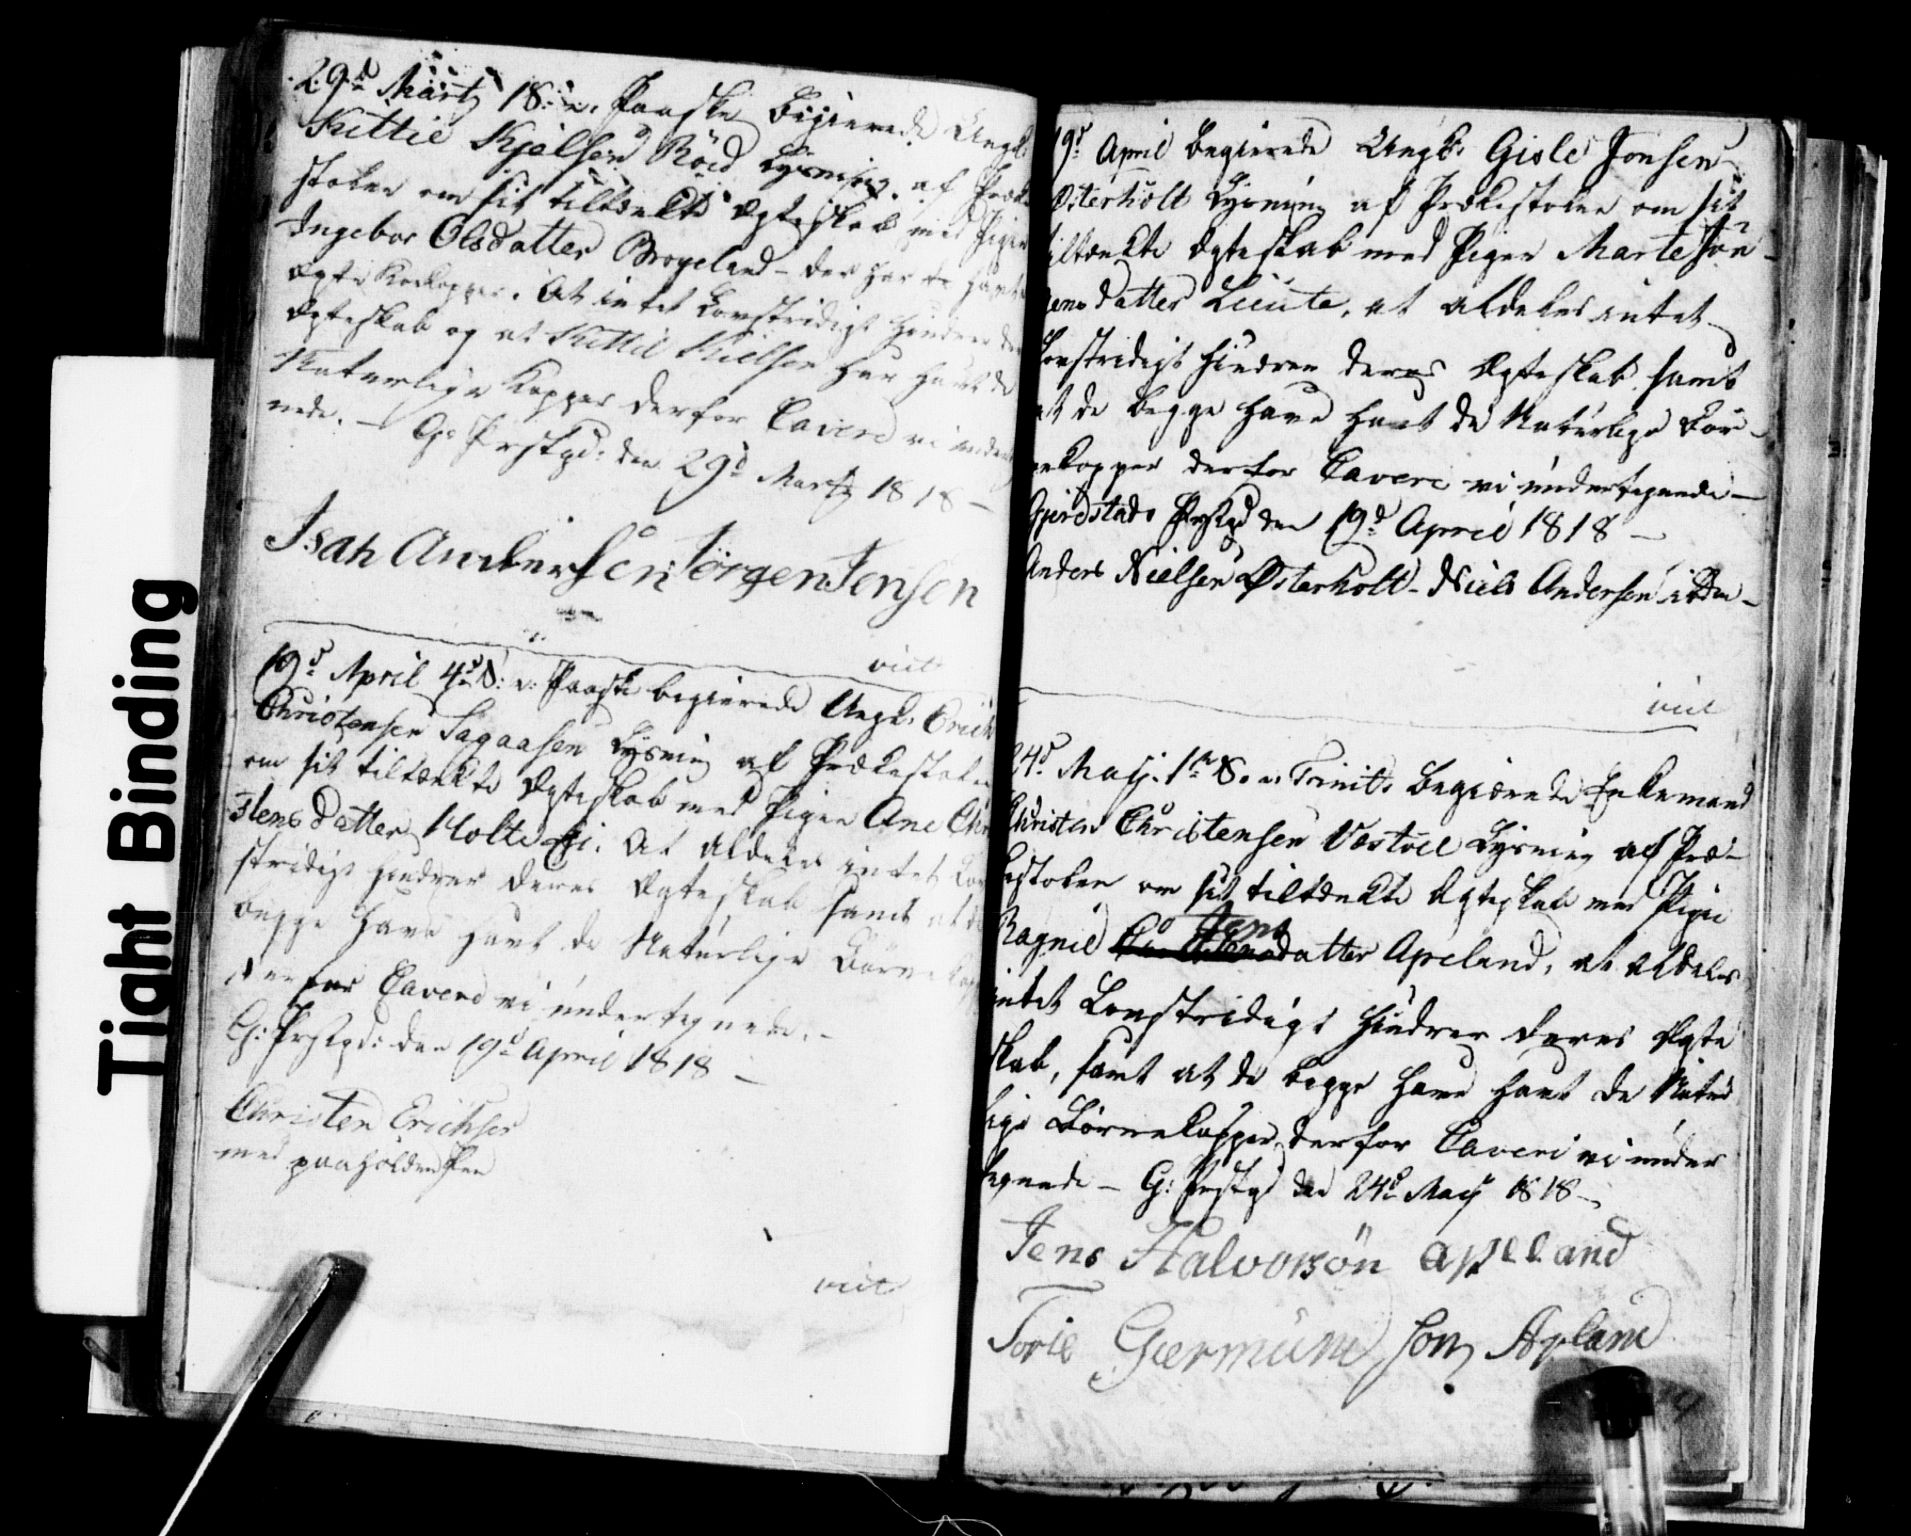 29d Martz 1 S: e. Paaske begierede Ungk:
Kittil Kjelsen Röed Lysning af Præke
stolen om sit tiltænkte Ægteskab med Pigen
Ingebor Olsdatter Brogeland - der har havt
ægte Kokopper. At intet Lovstridigt hindrer
Ægteskab og at Kittil Kielsen har havt de
Naturlige Kopper derfor Cavere vi under
nede. - G: Præstgd: den 29d Martz 1818 -
Isak Andersen Jörgen Jensen
viet
19d April 4d S: e: Paaske begierede Ungk: Erich
Christensen Sagaasen Lysning af Prækestolen
om sit tiltænkte Ægteskab med Pigen Ane Chr
stensdatter Holte At aldeles intet Lov
stridigt hindrer deres Ægteskab samt at de
begge have havt de Naturlige Börnekop
derfor Cavere vi undertegnede. -
G: Præstgd: den 19d April 1818 -
Christen Erichsen
med paaholden Pen
viet
19d April begierede Ungk: Gisle Jonsen
Østerholt Lysning af Prækestolen om sit
tiltænkte Ægteskab med Pigen Marte Jör-
gensdatter Lunte, at aldeles intet
Lovstridigt hindrer deres Ægteskab samt
at de begge have havt de Naturlige Bör-
nekopper derfor Cavere vi undertegnede -
Gjerestads Præstgd den 19d April 1818 -
Anders Nielsen Østerholt - Niels Andersen ibdm -
viet
24d Maij. 1ste S. e. Trinit: begierede Enkemand
Christen Christensen Vestöel Lysning af Præ-
kestolen om sit tiltænkte Ægteskab med Pigen
Ragnil Jensdatter Apeland, at aldeles
intet Lovstridigt hindrer deres Ægte
skab, samt at de begge have havt de Natur
lige Börnekopper, derfor Cavere vi under
tegnede - G: Præstgd den 24d Maij 1818 -
Jens Halvorsön apeland
Torie Giermund son Apland
Tight Binding